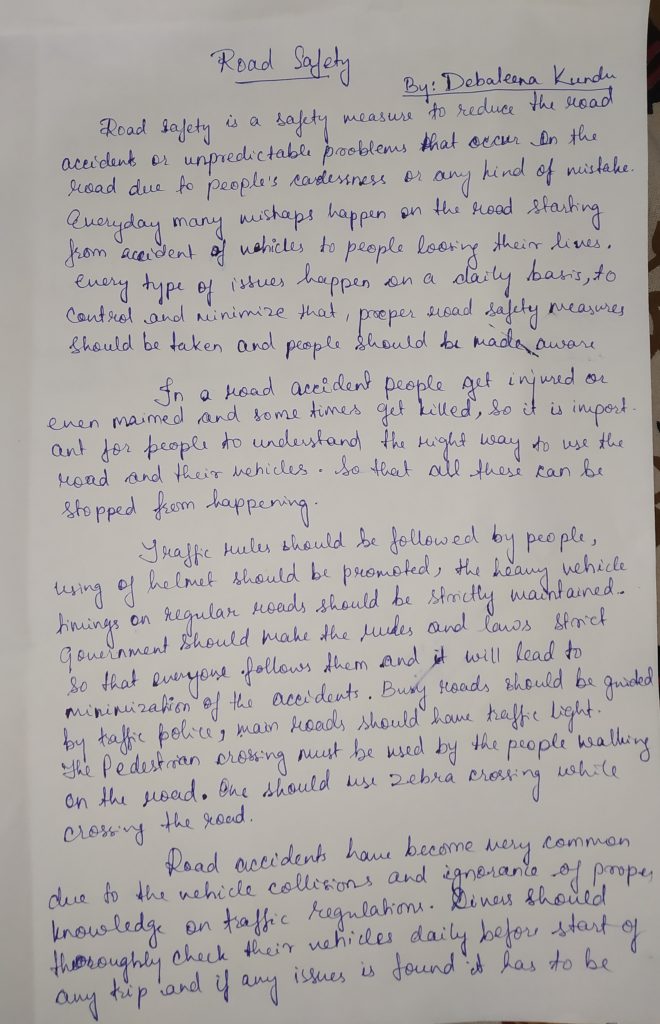 Road Safety
By: Debaleena Kundu
Road safety is a safety measure to reduce the road
accident or unpredictable problems that occur on the
road due to people's carlessness or any kind of mistake.
Everyday many mishaps happen on the road starting
from accident of vehicles to people loosing their lives.
every type of issues happen on a daily basis, to
control and minimize that, proper road safety measures
should be taken and people should be made aware
In a road accident people get injured or
even maimed and some times get killed, so it is import-
ant for people to understand the right way to use the
road and their vehicles. So that all these can be
stopped from happening.
Traffic rules should be followed by people,
using of helmet should be promoted, the heavy vehicle
timings on regular roads should be strictly maintained.
Government should make the rules and laws strict
so that everyone follows them and it will lead to
minimization of the accidents. Busy roads should be guided
by traffic police, main roads should have traffic light.
The Pedestrian crossing must be used by the people walking
on the road. One should use zebra crossing while
crossing the road.
Road accidents have become very common
due to the vehicle collisions and ignorance of proper
knowledge on traffic regulations. Divers should
thoroughly check their vehicles daily before start of
any trip and if any issues is found it has to be